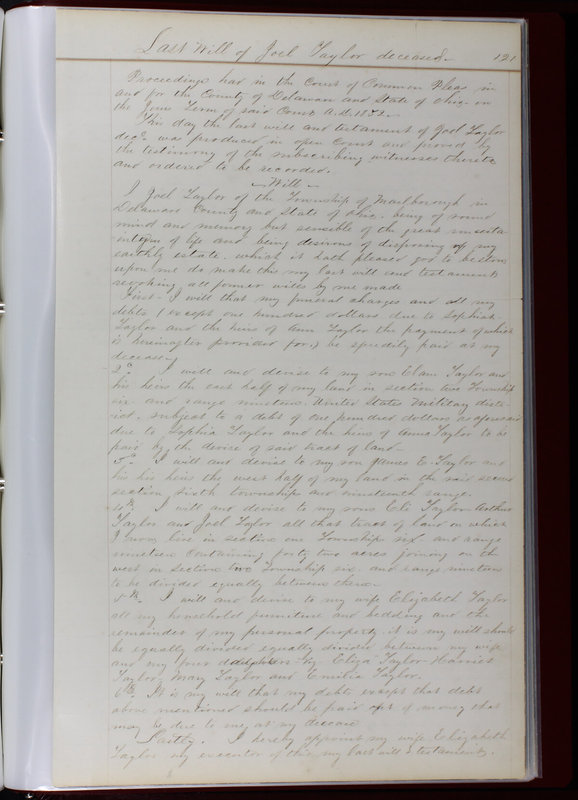 Last Will of Joel Taylor deceased. 121
Proceedings had in the Court of Common Pleas in
and for the County of Delaware and State of Ohio on
the June Term of said Court A.D. 1832.
This day the last will and testament of Joel Taylor
decd. was produced in open Court and proved by
the testimony of the subscribing witnesses thereto
and ordered to be recorded.
Will
I Joel Taylor of the Township of Marlborough in
Delaware County and State of Ohio. being of sound
mind and memory but sensible of the great
of life and being desirous of disposing of my
earthly estate. which it hath pleased god to bestow
upon me do make this my last will and testament
revoking all former wills by me made
First - I will that my funeral charges and all my
debts (except one hundred dollars due to Sophia
Taylor and the heirs of Ann Taylor the payment of which
is hereinafter provided for,) be speedily paid at my
decease,
2d. I will and devise to my son Elam Taylor and
his heirs the east half of my land in section two Township
six and range nineteen. United States Military dist-
rict, subject to a debt of one hundred dollars as aforesaid
due to Sophia Taylor and the heirs of Anna Taylor to be
paid by the devise of said tract of land -
3d. I will and devise to my son James E. Taylor and
his his heirs the west half of my land in the said second
section, sixth township and nineteenth range.
4th. I will and devise to my sons Eli Taylor Arthur
Taylor and Joel Taylor all that tract of land on which
I now live in section one Township six and range
nineteen Containing forty two acres joining on the
west in section two Township six and range nineteen
to be divided equally between them -
5th. I will and devise to my wife Elizabeth Taylor
all my household furniture and bedding and the
remainder of my personal property. it is my will should
be equally divided equally divided between my wife
and my four daughters by Eliza Taylor Harriet
Taylor, Mary Taylor and Emilia Taylor.
6th. It is my will that my debts except that debt
above mentioned should be paid out of money that
may be due to me, at my decease
Lastly. I hereby appoint my wife Elizabeth
Taylor my executor of this my last will & testament.